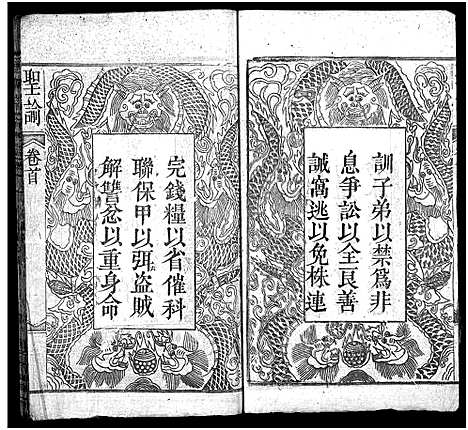 訓子弟以禁爲非
息爭訟以全良善
誡窩逃以免株連
完錢糧以省催科
聯保甲以弭盜賊
解讐忿以重身命
聖諭
卷首